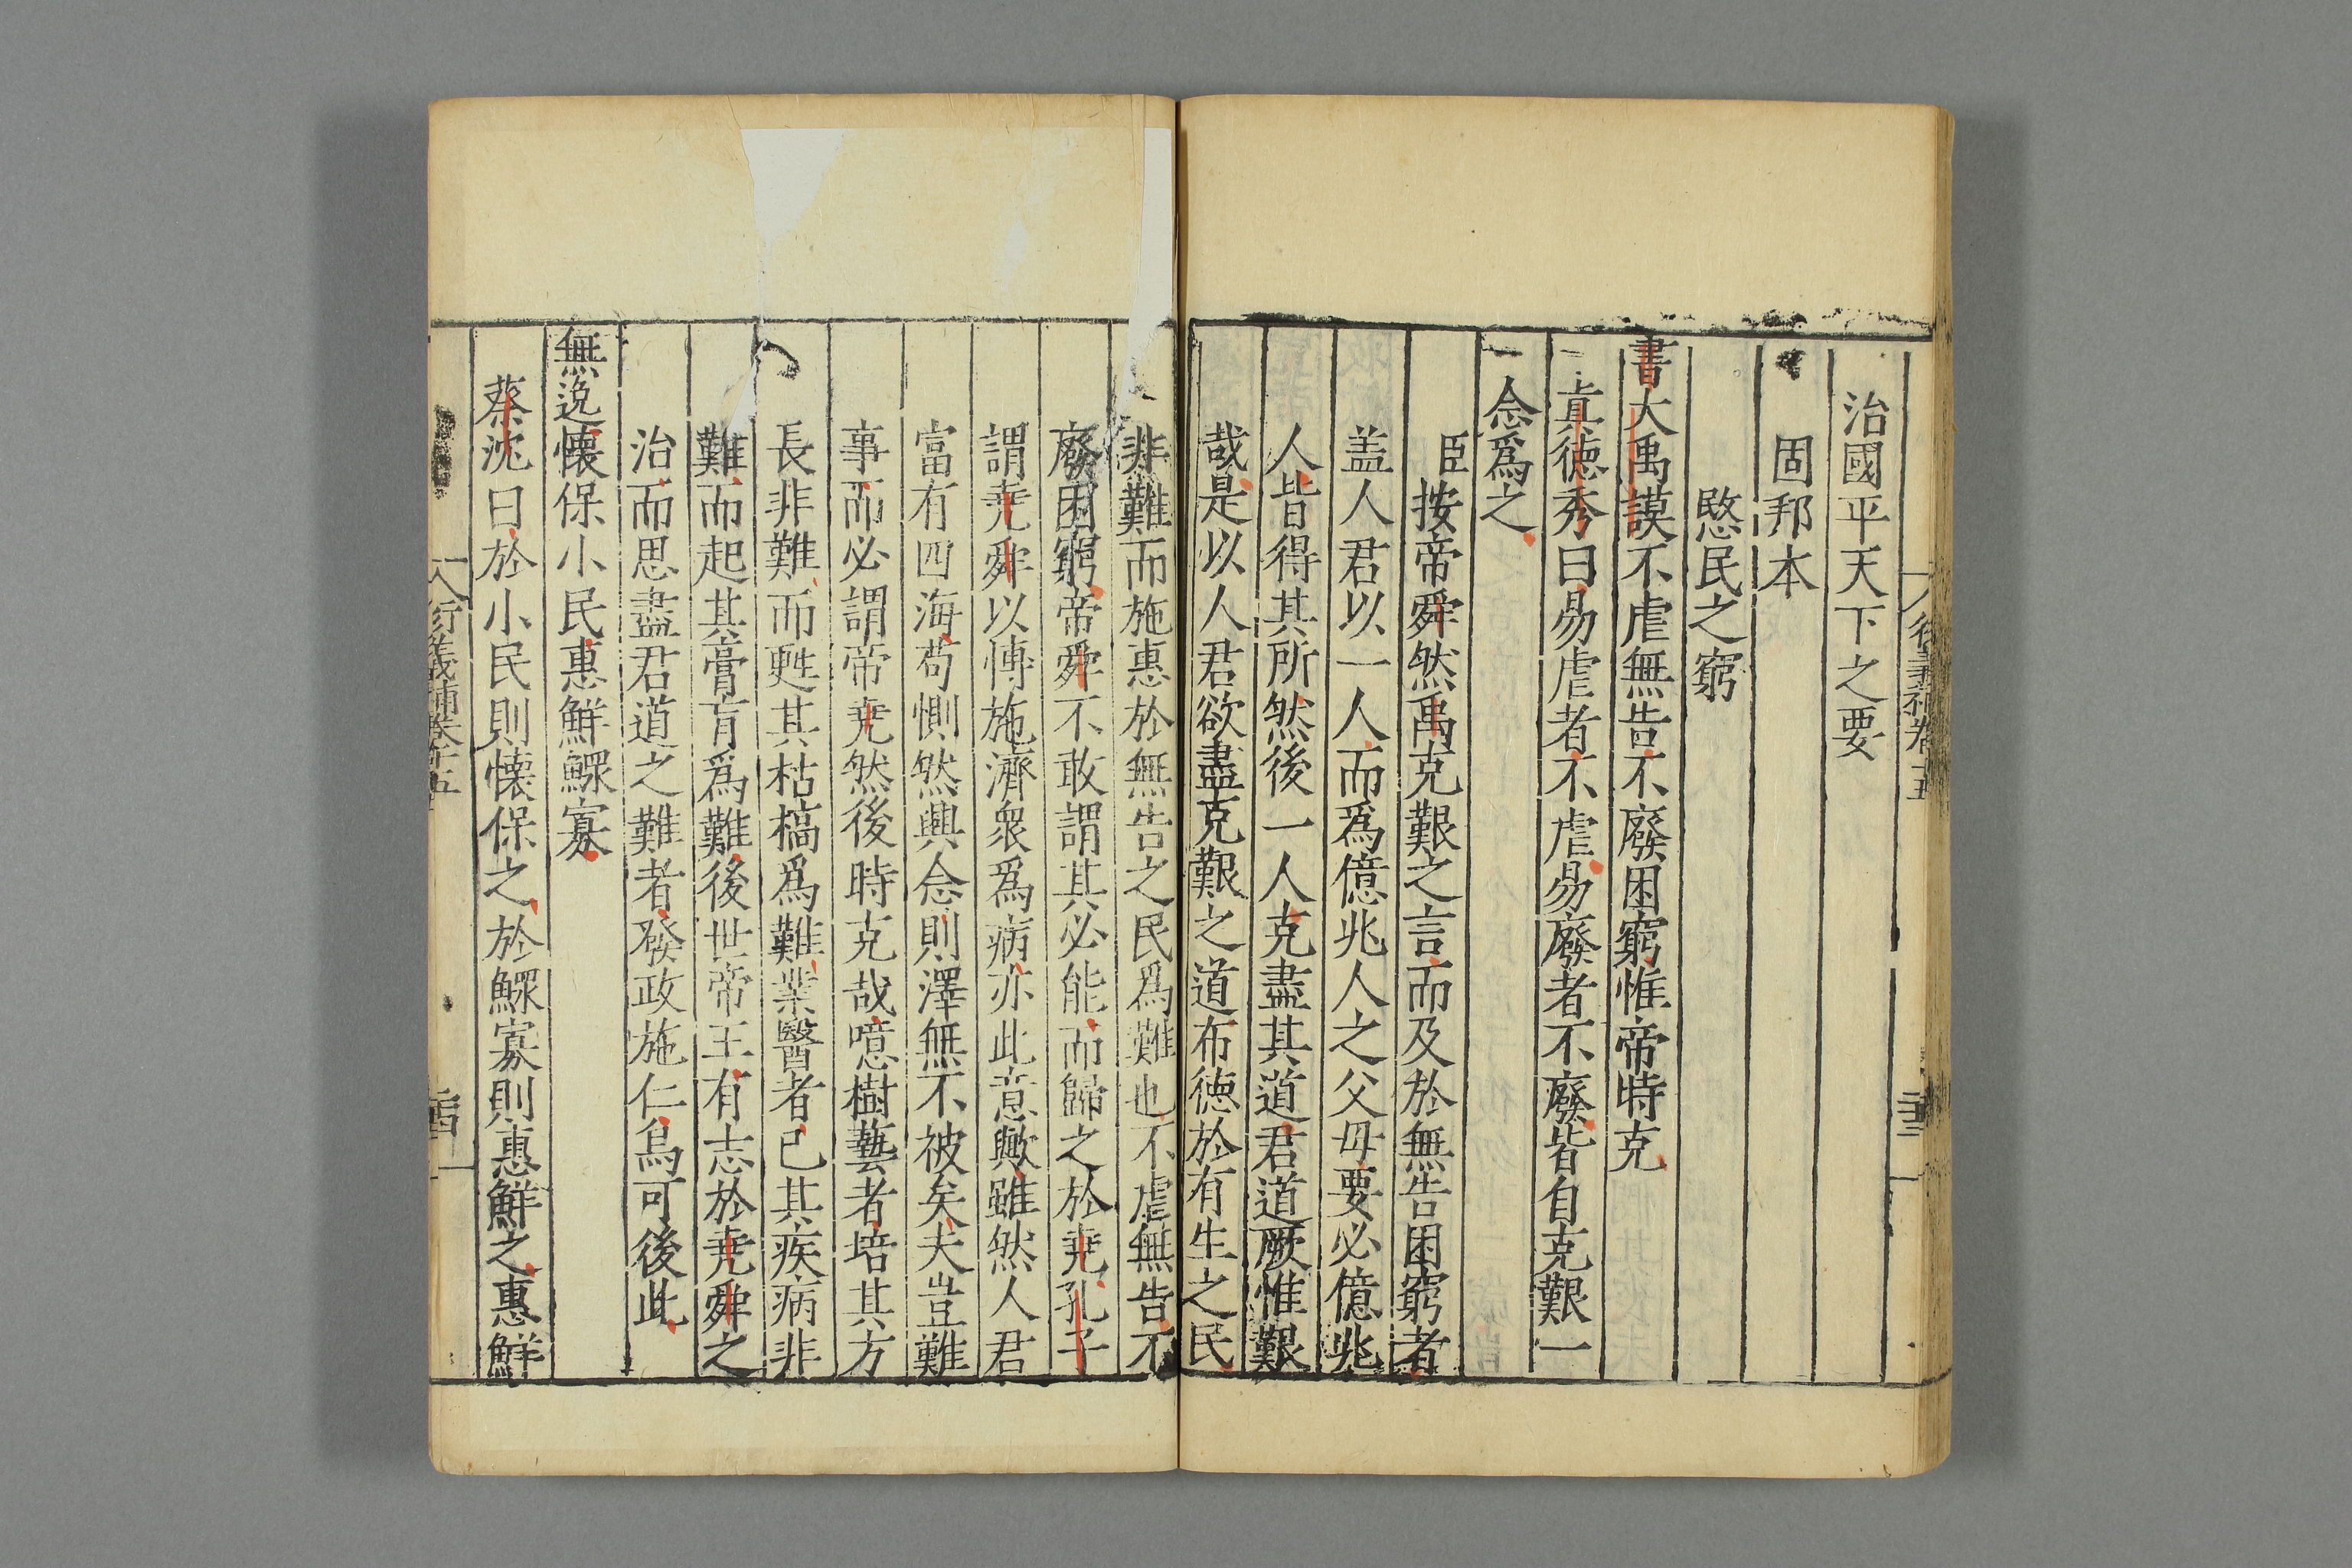 治國平天下之要
固邦本
愍民之窮
書大禹謨不虐無告不廢困窮惟帝時克
真德秀曰易虐者不虐易廢者不廢皆自克艱一
念爲之
臣按帝舜然禹克艱之言而及於無告困窮者
盖人君以一人而爲億兆人之父母要必億兆
人皆得其所然後一人克盡其道君道厥惟艱
哉是以人君欲盡克艱之道布德於有生之民
非難而施惠於無告之民爲難也不虐無告不
廢困窮帝舜不敢謂其必能而歸之於堯孔子
謂堯舜以博施濟衆爲病亦此意歟雖然人君
富有四海苟惻然興念則澤無不被矣夫豈難
事而必謂帝堯然後時克哉噫樹藝者培其方
長非難而甦其枯槁爲難業醫者已其疾病非
難而起其膏肓爲難後世帝王有志於堯舜之
治而思盡君道之難者發政施仁烏可後此
無逸懷保小民惠鮮鰥寡
蔡沈曰於小民則懷保之於鰥寡則惠鮮之惠鮮
衍義補卷十五